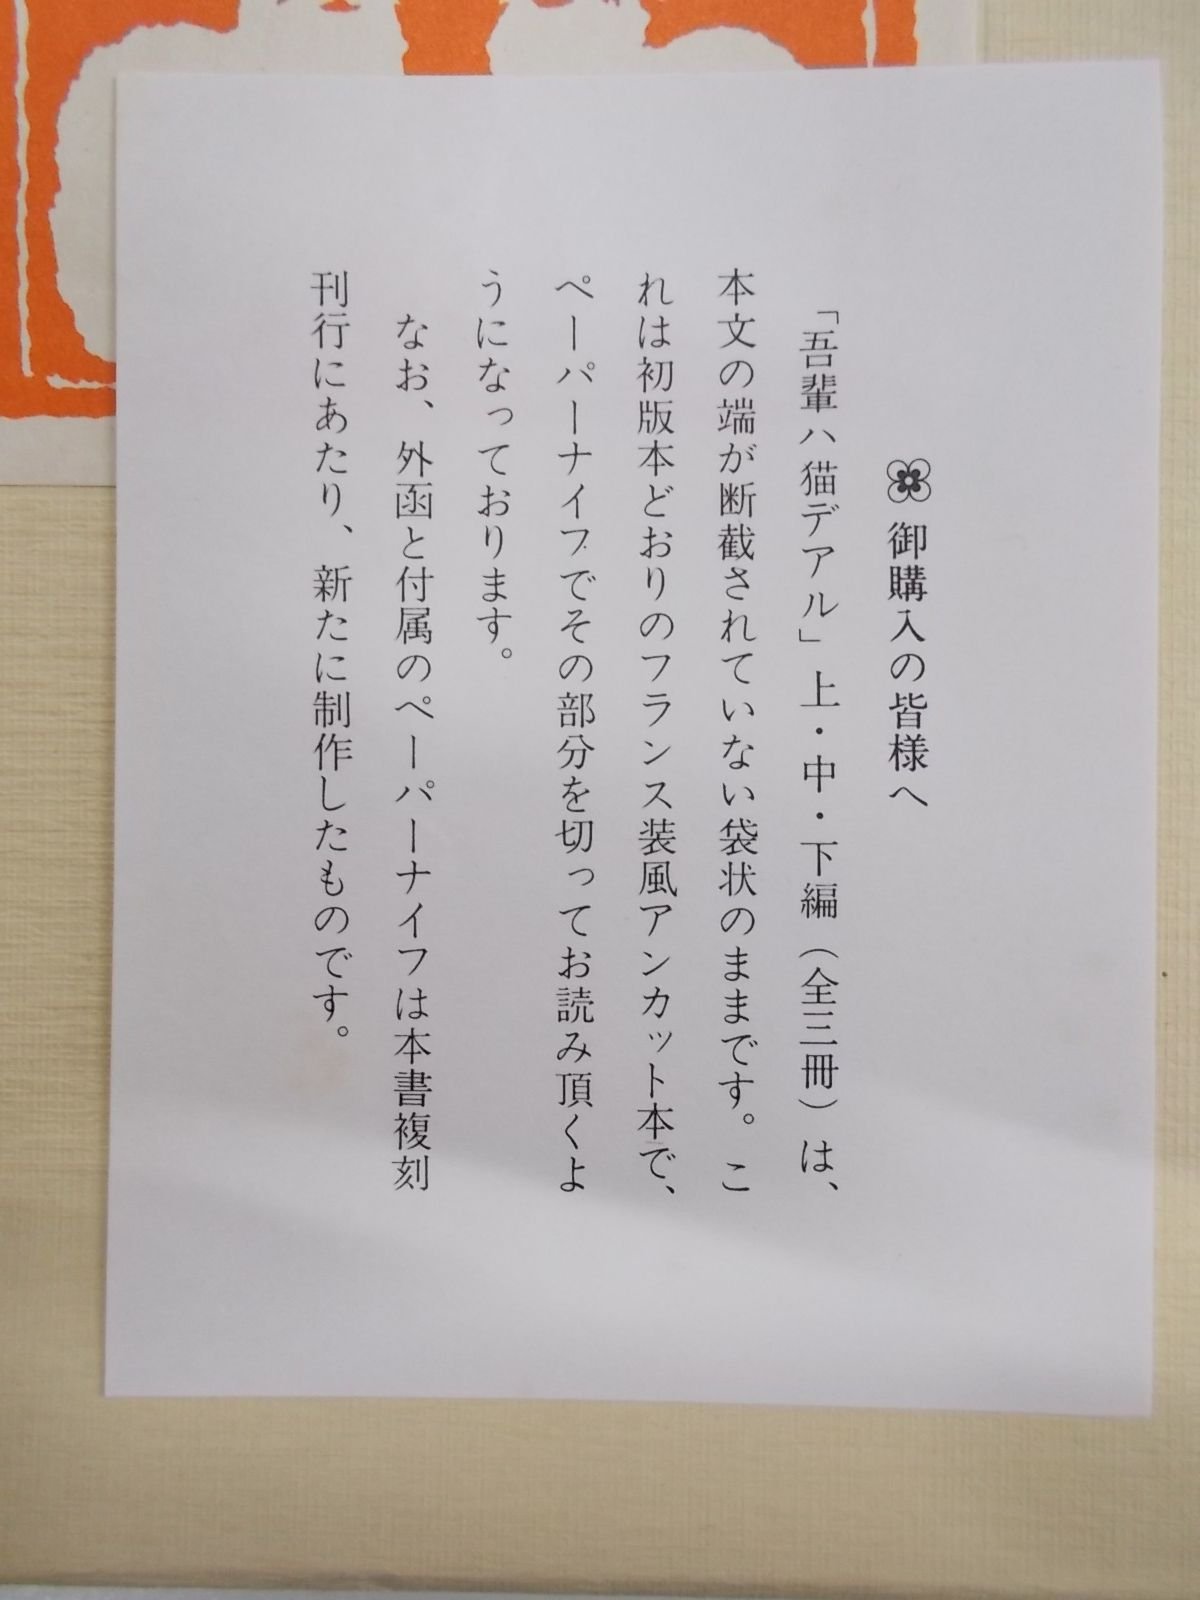 御購入の皆様へ
「吾輩ハ猫デアル」上・中・下編（全三冊）は、
本文の端が断截されていない袋状のままです。こ
れは初版本どおりのフランス装風アンカット本で、
ペーパーナイフでその部分を切ってお読み頂くよ
うになっております。
なお、外函と付属のペーパーナイフは本書複刻
刊行にあたり、新たに制作したものです。